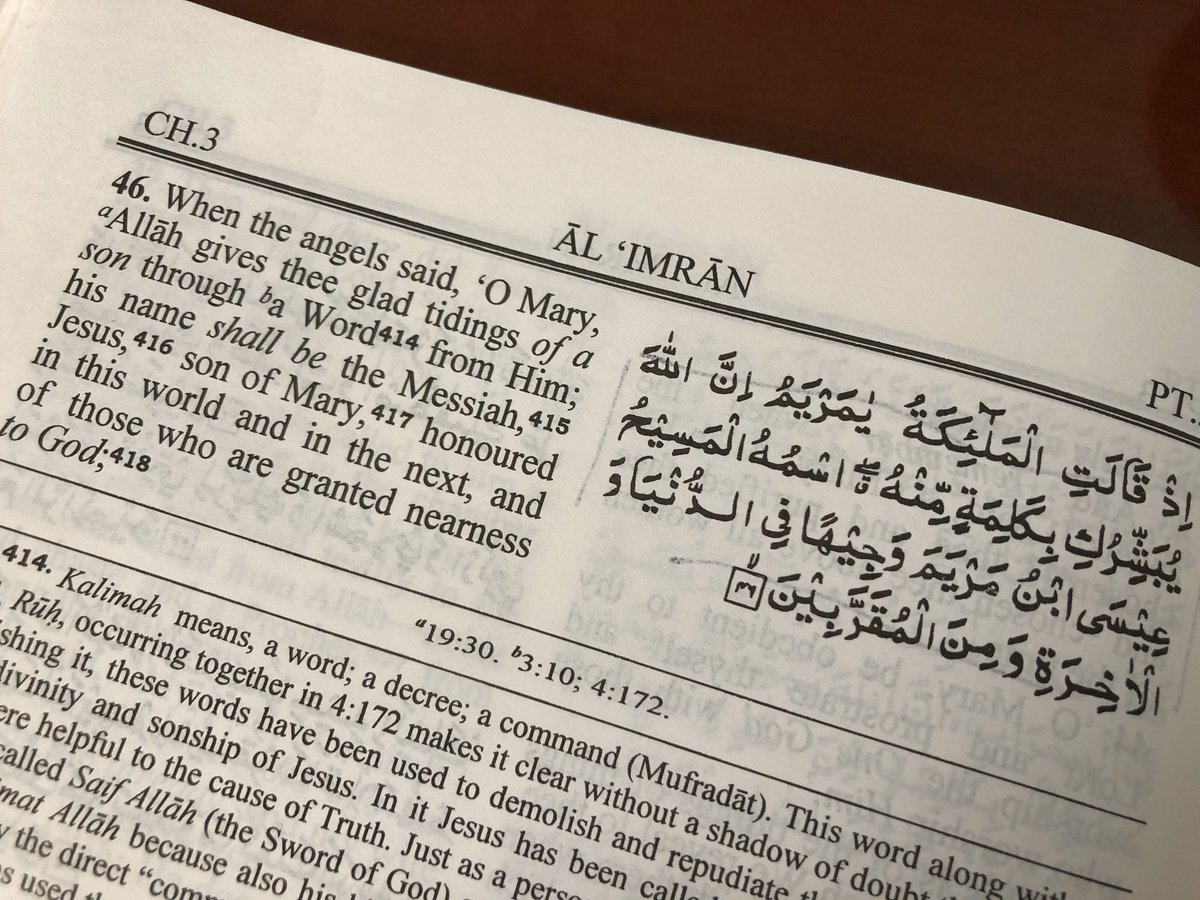 CH.3
ĀL ‘IMRĀN
PT.
46. When the angels said, ‘O Mary,
ᵃAllāh gives thee glad tidings of a
son through ᵇa Word414 from Him;
his name shall be the Messiah,415
Jesus,416 son of Mary,417 honoured
in this world and in the next, and
of those who are granted nearness
to God;418
اِذْ قَالَتِ الْمَلٰٓئِكَةُ يٰمَرْيَمُ اِنَّ اللّٰهَ
يُبَشِّرُكِ بِكَلِمَةٍ مِّنْهُ ۖۗ اسْمُهُ الْمَسِيْحُ
عِيْسَى ابْنُ مَرْيَمَ وَجِيْهًا فِي الدُّنْيَا وَ
الْاٰخِرَةِ وَ مِنَ الْمُقَرَّبِيْنَ ۙ۴۶
ᵃ19:30. ᵇ3:10; 4:172.
414. Kalimah means, a word; a decree; a command (Mufradāt). This word along with
Rūḥ, occurring together in 4:172 makes it clear without a shadow of doubt
shing it, these words have been used to demolish and repudiate
divinity and sonship of Jesus. In it Jesus has been called
ere helpful to the cause of Truth. Just as a person
called Saif Allāh (the Sword of God)
mat Allāh because also his
the direct “comm
s used